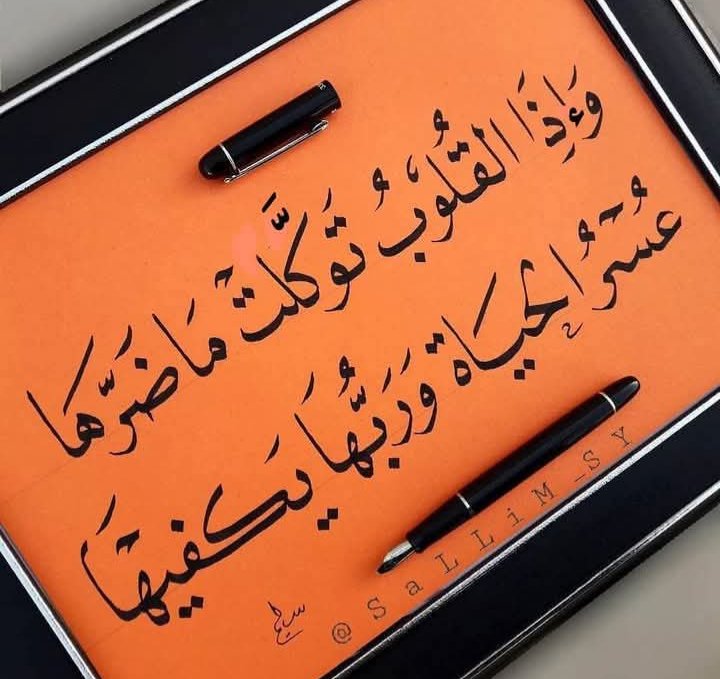 وَإِذَا الْقُلُوبُ تَوَكَّلَتْ مَا ضَرَّهَا
عُسْرُ الحَيَاةِ وَرَبُّهَا يَكفِيهَا
@SaLLiM_SY